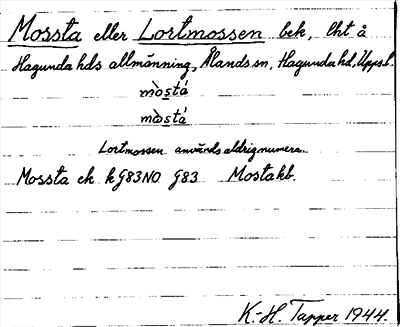 Mossta eller Lortmossen bek, lht å
Hagunda hds allmänning, Ålands sn, Hagunda hd, Uppsl.
mòstá
mòstá
Lortmossen används aldrig numera.
Mossta ek kG83NO G83 Mosta kb.
K.-H. Tapper 1944.